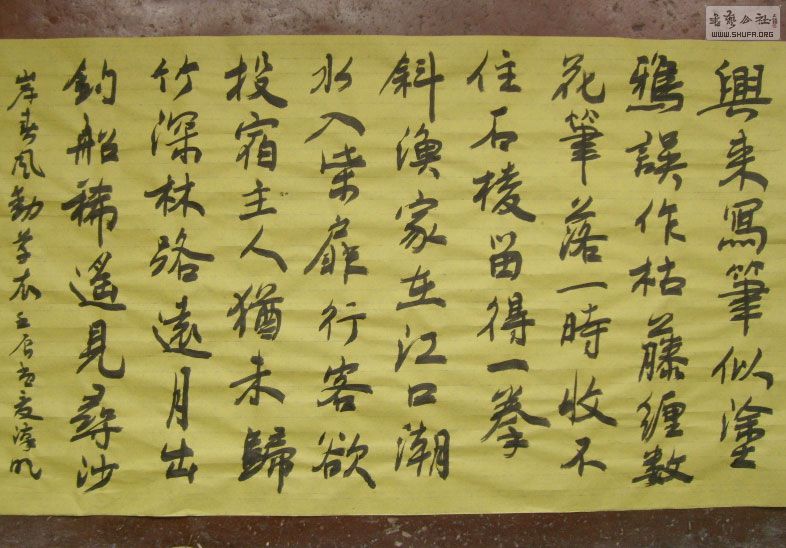 興来寫筆似塗
鴉誤作枯藤纏数
花筆落一時收不
住石棱留得一拳
斜漁家在江口潮
水入柴扉行客欲
投宿主人猶未歸
竹深林路遠月出
釣船稀遥見尋沙
岸春风動草衣壬辰
书艺公社
WWW.SHUFA.ORG